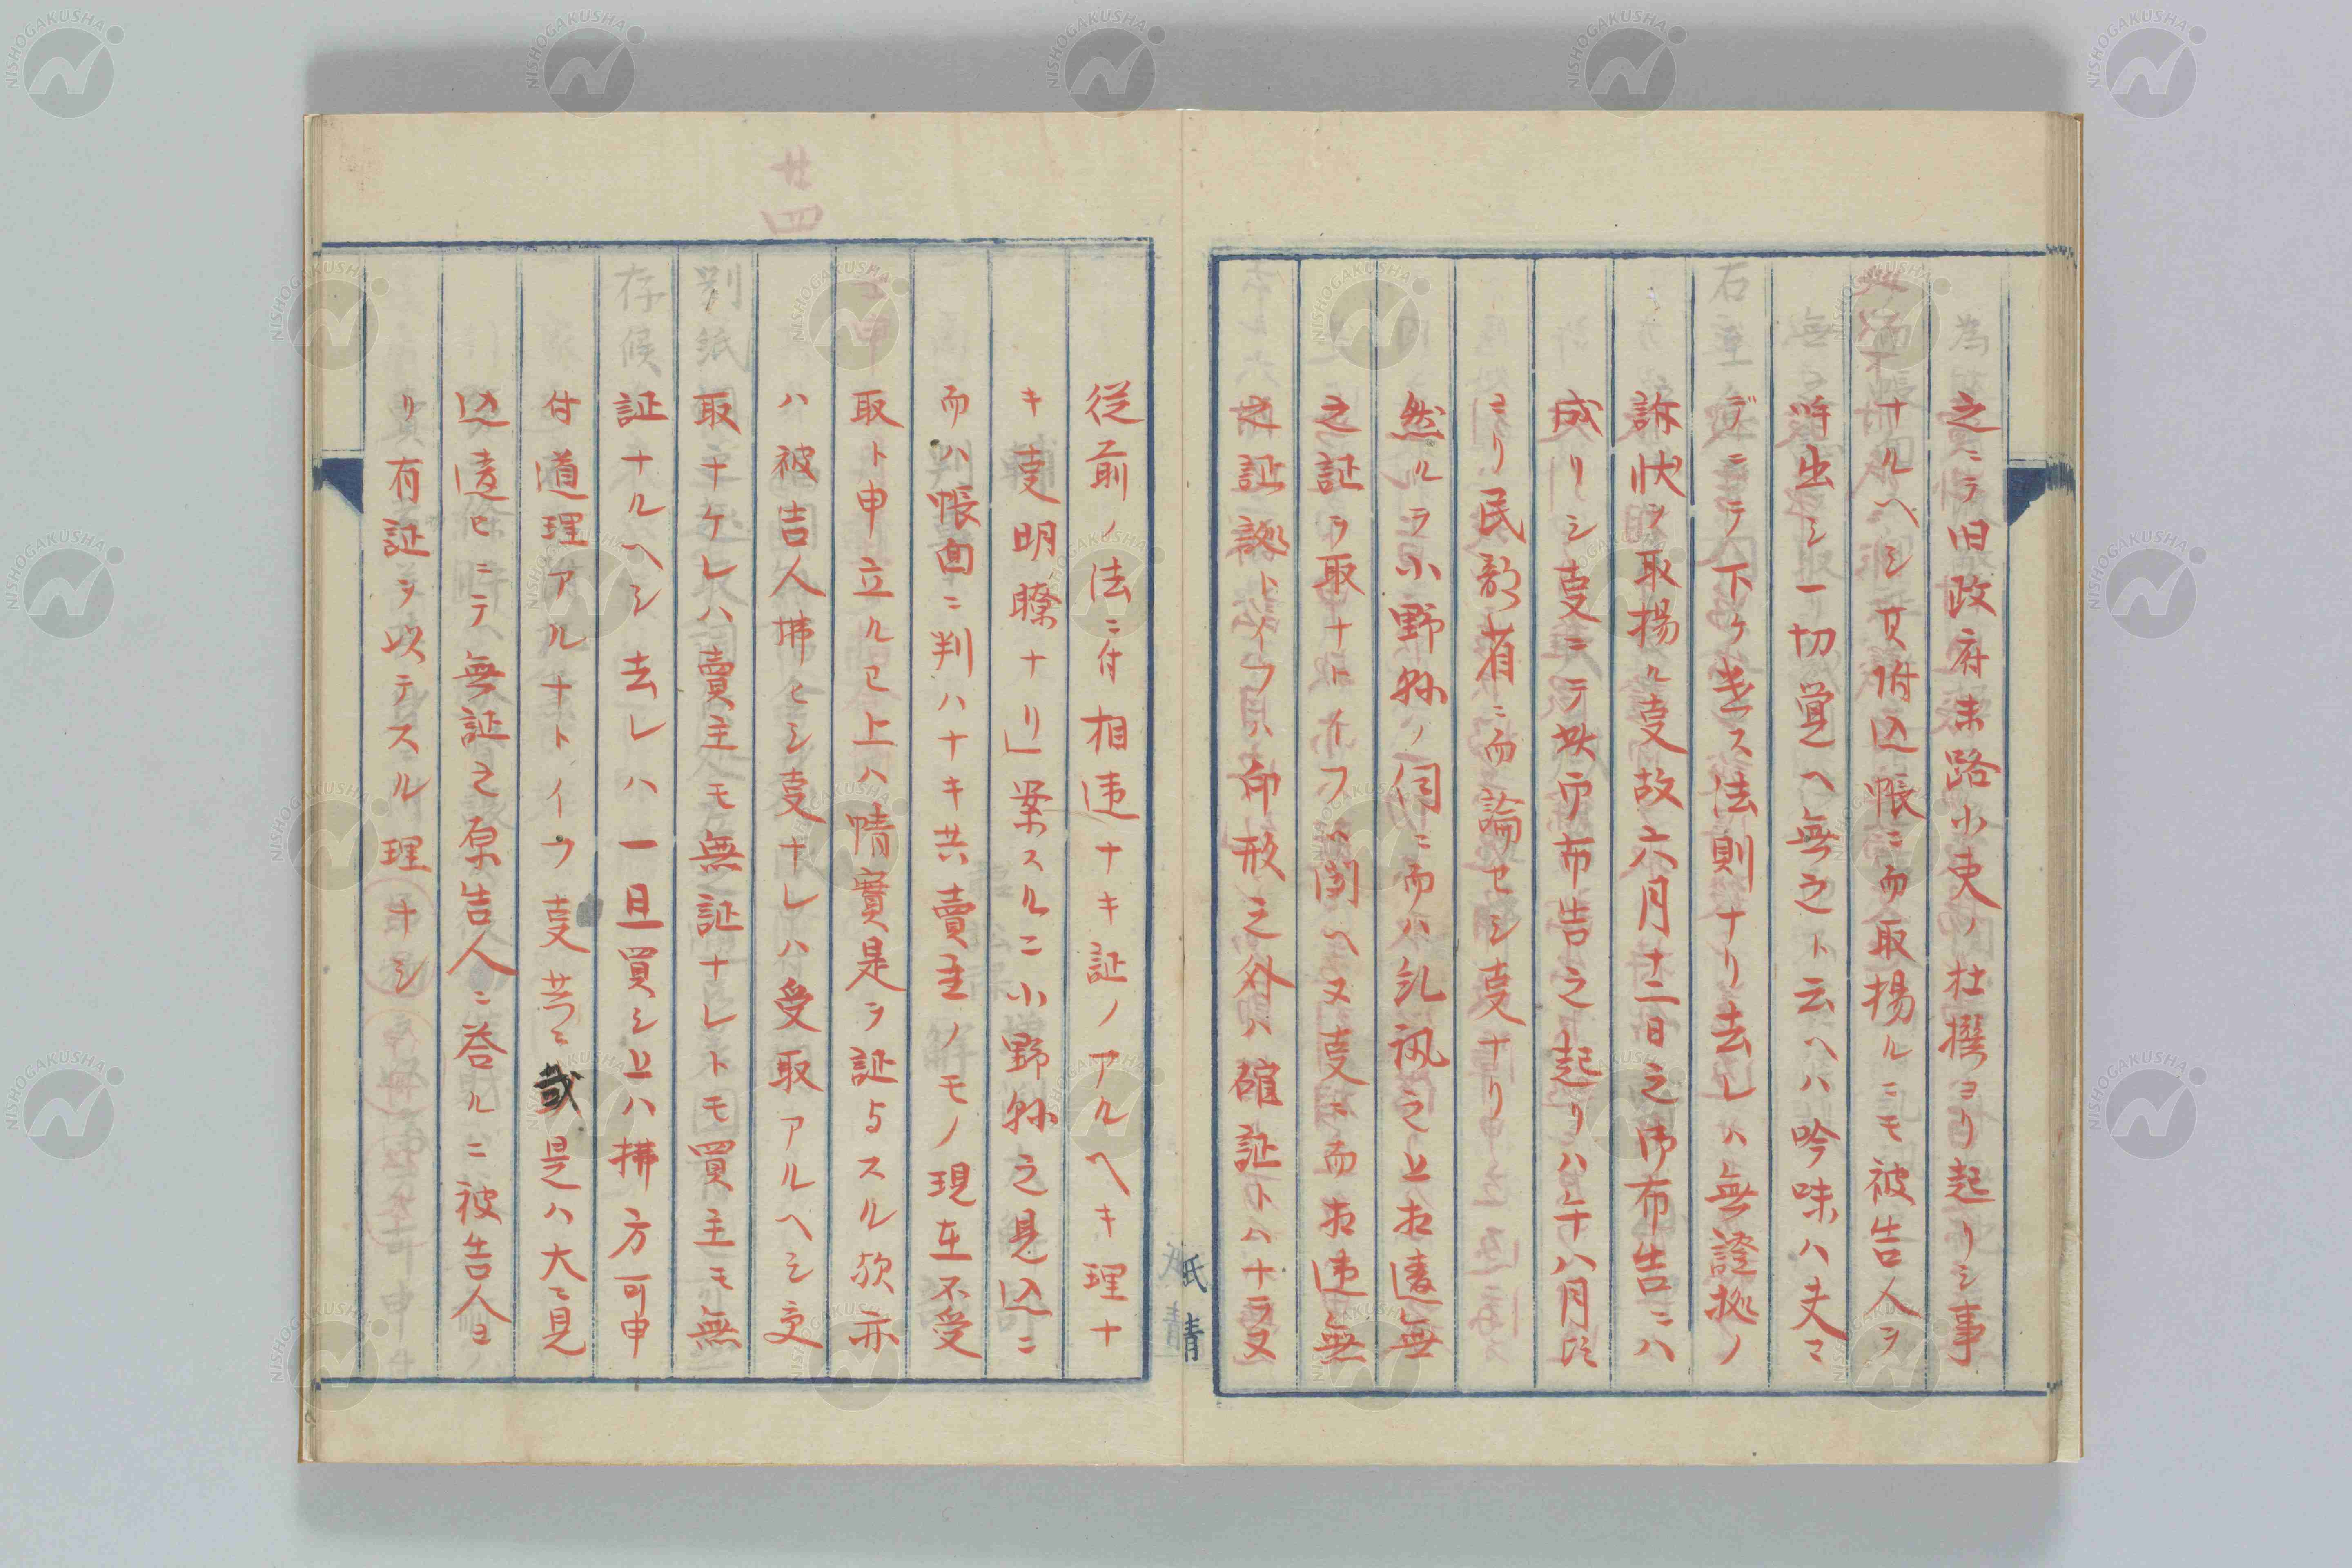 之ニテ旧政府末路小吏ノ杜撰ヨリ起リシ事
ナルヘシ其附込帳ニ而取揚ルニモ被告人ヲ
呼出シ一切覚ヘ無之ト云ヘハ吟味ハ夫マ
デニテ下ケ遣ス法則ナリ去レハ無證拠ノ
訴状ヲ取揚ル叓故六月十二日之御布告ニハ
成リシ叓ニテ此御布告之起リハ午八月
ヨリ民部省ニ而論セシ叓ナリ
然ルヲ小野縣ノ伺ニ而ハ糺訊之上相違無
之証ヲ取ナトイフハ聞ヘヌ叓ニ而相違無
之証認トイフハ印形之外ハ確証トハナラヌ
従前ノ法ニ付相違ナキ証ノアルヘキ理ナ
キ叓明瞭ナリ」案スルニ小野縣之見込ニ
而ハ帳面ニ判ハナキ共賣主ノモノ現在不受
取ト申立ルヒ上ハ情實是ヲ証与スル欤亦
ハ被告人拂ヒシ叓ナレハ受取アルヘシ受
取ナケレハ賣主モ無証ナレトモ買主モ無
証ナルヘシ去レハ一旦買シ上ハ拂方可申
付道理アルナトイウ叓共ニ或是ハ大ニ見
込違ヒニテ無証之原告人ニ答ルニ被告人ヨ
リ有証ヲ以テスル理ナシ
廿四
NISHOGAKUSHA